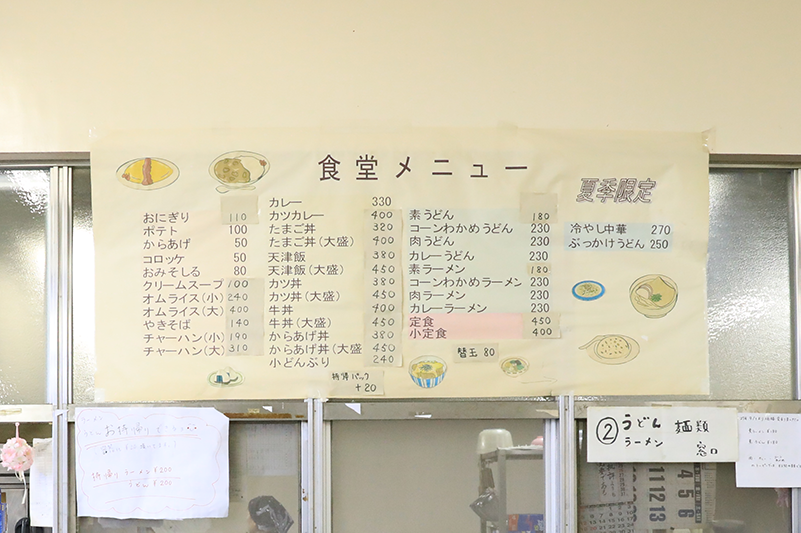 食堂メニュー
おにぎり 110
ポテト 100
からあげ 50
コロッケ 50
おみそしる 80
クリームスープ 100
オムライス(小) 240
オムライス(大) 400
やきそば 140
チャーハン(小) 190
チャーハン(大) 310
カレー 330
カツカレー 400
たまご丼 320
たまご丼(大盛) 400
天津飯 380
天津飯(大盛) 450
カツ丼 380
カツ丼(大盛) 450
牛丼 400
牛丼(大盛) 450
からあげ丼 380
からあげ丼(大盛 450
小どんぶり 240
持帰パック
+20
素うどん 180
コーンわかめうどん 230
肉うどん 230
カレーうどん 230
素ラーメン 180
コーンわかめラーメン 230
肉ラーメン 230
カレーラーメン 230
定食 450
小定食 400
替玉 80
夏季限定
冷やし中華 270
ぶっかけうどん 250
お持帰り
持帰りラーメン ¥200
うどん ¥200
② うどん ラーメン 麺類 窓口
11 4
12 5
13 6